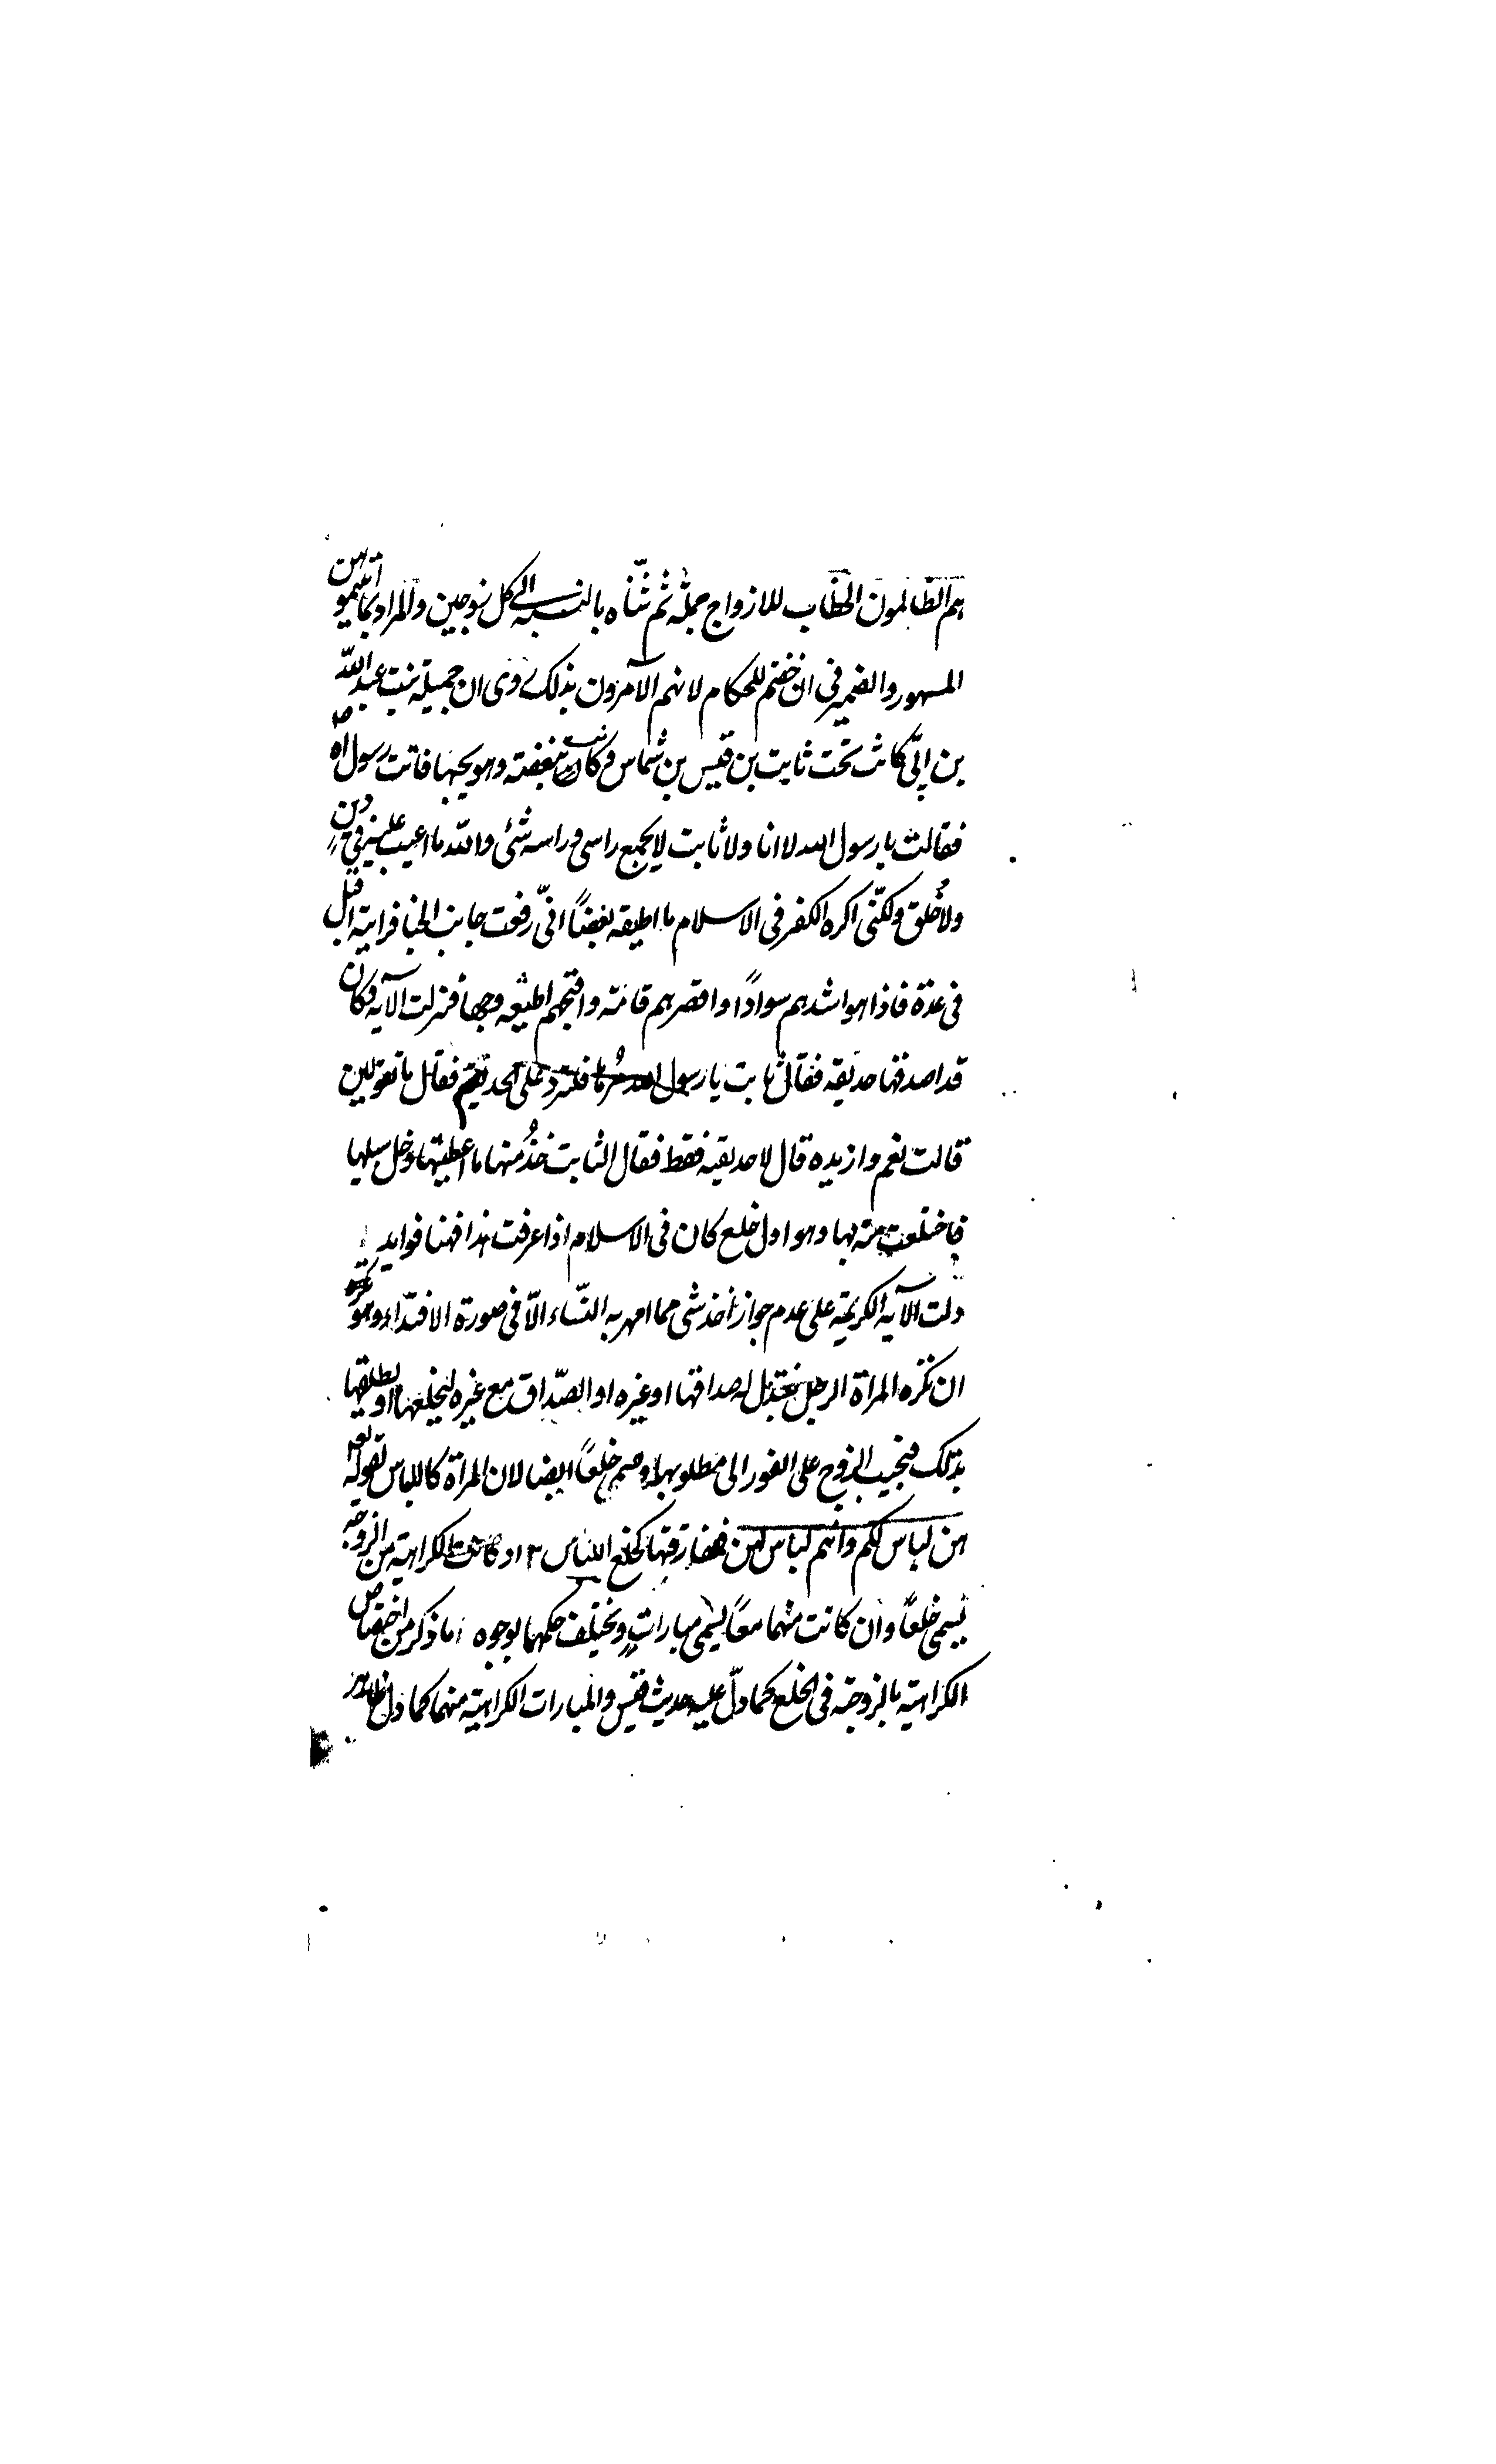 هم الظالمون الخطاب للازواج جملة ثم ثنّاه بالنسبة الى كل زوجين والمراد بما آتيتموهن
المهور والضمير فى ان خفتم للحكام لانهم الآمرون بذلك روى ان جميلة بنت عبد الله
بن ابىّ كانت تحت ثابت بن قيس بن شماس وكانت تبغضته وهو يحبها فاتت رسول الله ص
فقالت يا رسول الله لا انا ولا ثابت لا يجمع راسى وراسه شئ والله ما اعيب عليه فى دين
ولا خُلق ولكنّى اكره الكفر فى الاسلام ما اطيقه بغضاً انّى رفعت جانب الخبا فرايته اقبل
فى عدة فاذا هو اشدهم سواداً واقصرهم قامة واقبحهم وجهاً فنزلت الآية وكان
قد اصدقها حديقه فقال ثابت يا رسول الله مُرها فلترد على الحديقة فقال ما تقولين
قالت نعم وازيده قال لا حديقته فقط فقال لثابت خُذ منها ما اعطيتها وخل سبيلها
فاختلعت منه بها وهو اول خلع كان فى الاسلام اذا عرفت هذا فهنا فوايد
دلت الآية الكريمة على عدم جواز اخذ شى مما امهر به النّساء الاّ فى صورة الافتداء وهو
ان تكره المراة الرجل فتبذل له صداقها او غيره او الصّداق مع غيره ليخلعها او يطلقها
بذلك فيجيب الزوج على الفور الى مطلوبها وسمى خلعاً ايضا لان المراة كاللباس لقوله تعه
هن لباس لكم وانتم لباس لهن فمفارقتها كخلع اللباس ٢ ان كانت الكراهية من الزوجة
يسمى خلعاً وان كانت منهما معاً يسمى مبارات ويختلف حكمهما بوجوه ا ما ذكر من اختصاص
الكراهية بالزوجة فى الخلع كما دلّ عليه حديث قيس والمبارات الكراهية منهما كما دل